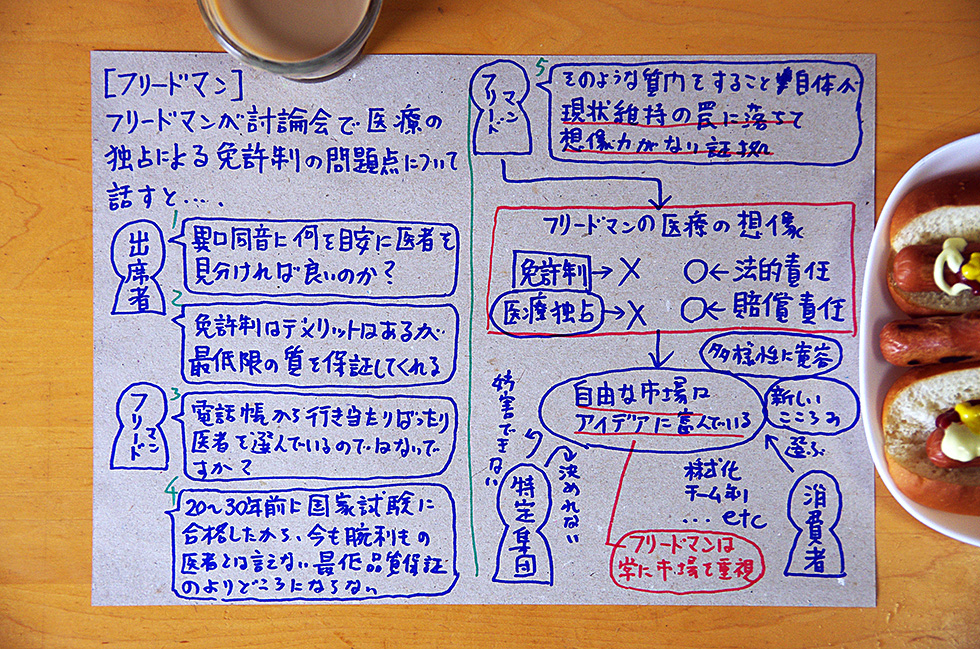 [フリードマン]
フリードマンが討論会で医療の
独占による免許制の問題点について
話すと….
出席者
1
異口同音に何を目安に医者を
見分ければ良いのか?
2
免許制はデメリットはあるが
最低限の質を保証してくれる
フリードマン
3
電話帳から行き当たりばったり
医者を選んでいるのではないで
すか?
4
20〜30年前に国家試験に
合格したから、今も腕利きの
医者とは言えない。最低品質保証
のよりどころにならない
フリードマン
5
そのような質問をすること自体が
現状維持の罠に落ちて
想像力がない証拠
フリードマンの医療の想像
免許制→× ○←法的責任
医療独占→× ○←賠償責任
多様性に寛容
自由な市場は
アイデアに富んでいる
新しい
こころみ
選ぶ
妨害できない
決められない
特定集団
株式化
チーム制
…etc
消費者
フリードマンは
常に市場を重視